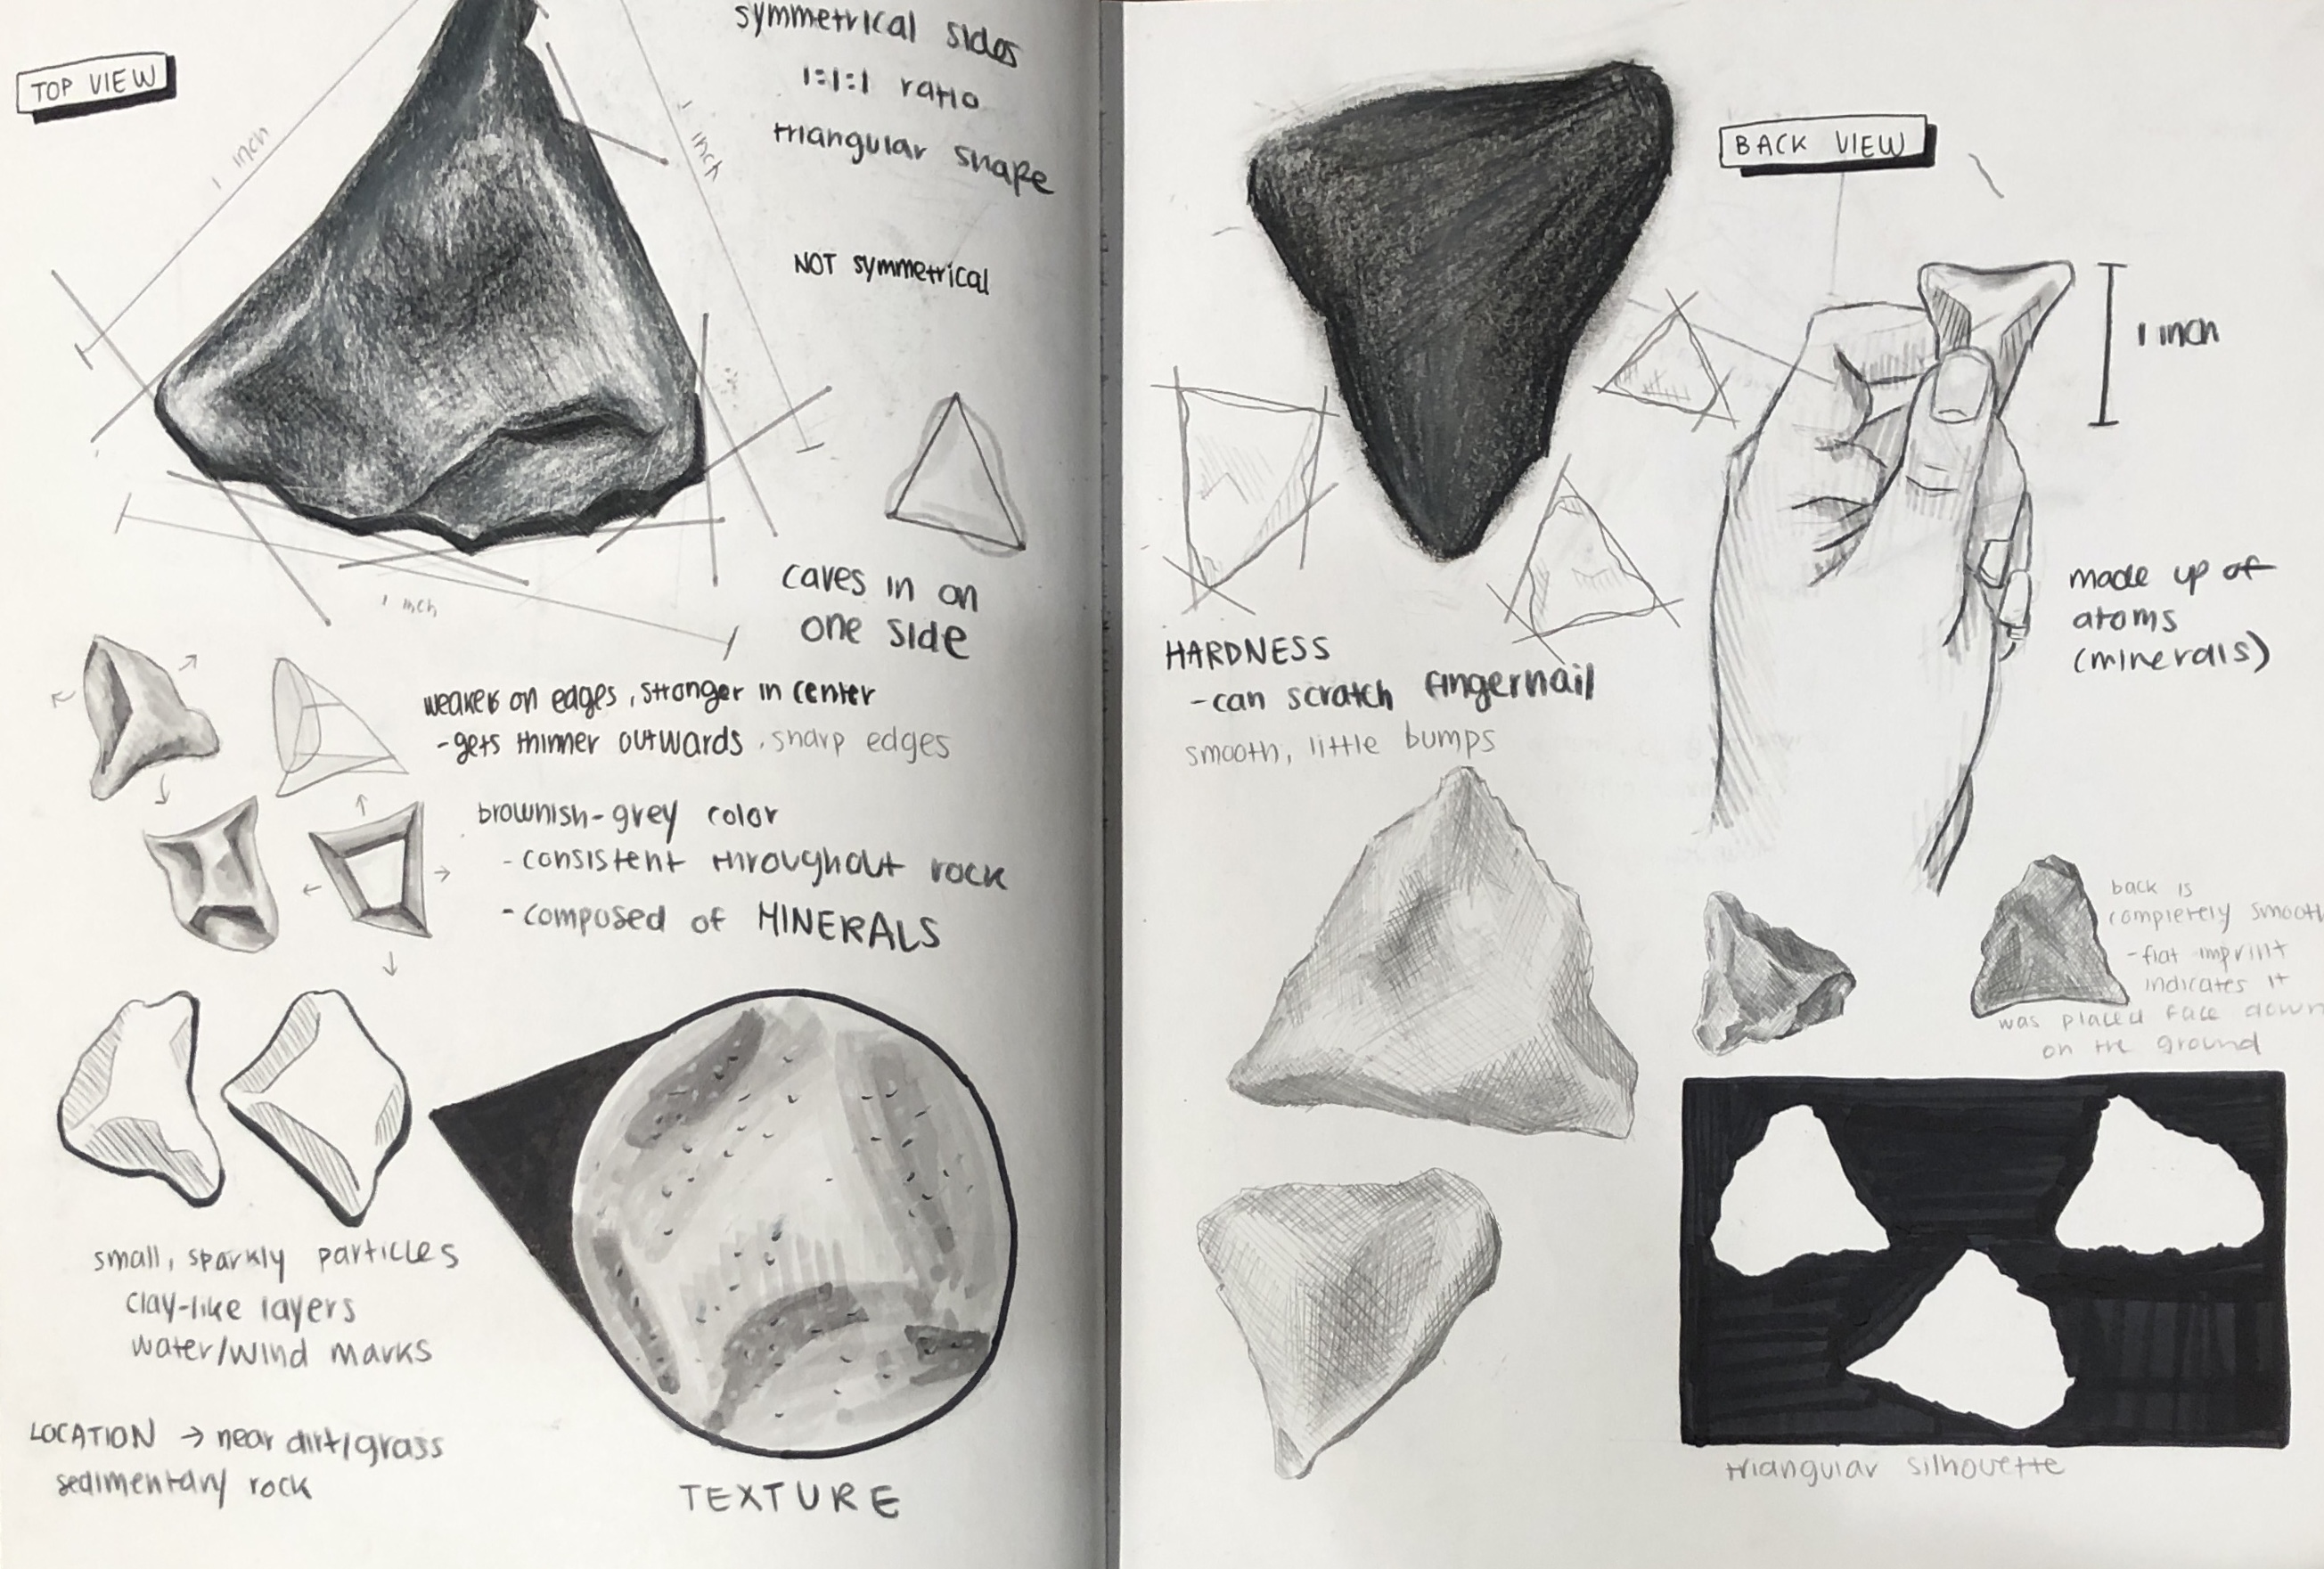 TOP VIEW
1 inch
1 inch
1 inch
symmetrical sides
1:1:1 ratio
triangular shape
NOT symmetrical
caves in on
one side
weaker on edges, stronger in center
-gets thinner outwards, sharp edges
brownish-grey color
-consistent throughout rock
-composed of MINERALS
small, sparkly particles
clay-like layers
water/wind marks
LOCATION → near dirt/grass
sedimentary rock
TEXTURE
BACK VIEW
1 inch
made up of
atoms
(minerals)
HARDNESS
-can scratch fingernail
smooth, little bumps
back is
completely smooth
-flat imprint
indicates it
was placed face down
on the ground
triangular silhouette